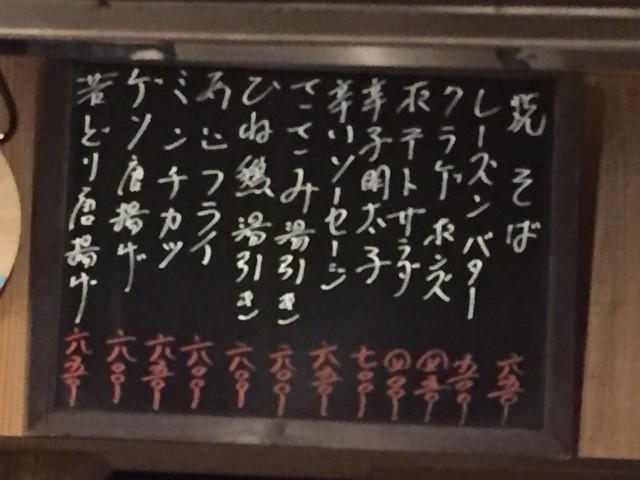 焼そば 六五〇
レーズンバター 五〇〇
クラゲポンズ 四五〇
ポテトサラダ 四〇〇
辛子明太子 七〇〇
辛いソーセージ 六五〇
せせみ湯引き 六〇〇
ひね鶏湯引き 六〇〇
あじフライ 六〇〇
ミンチカツ 六五〇
ゲソ唐揚げ 六〇〇
若どり唐揚げ 六五〇